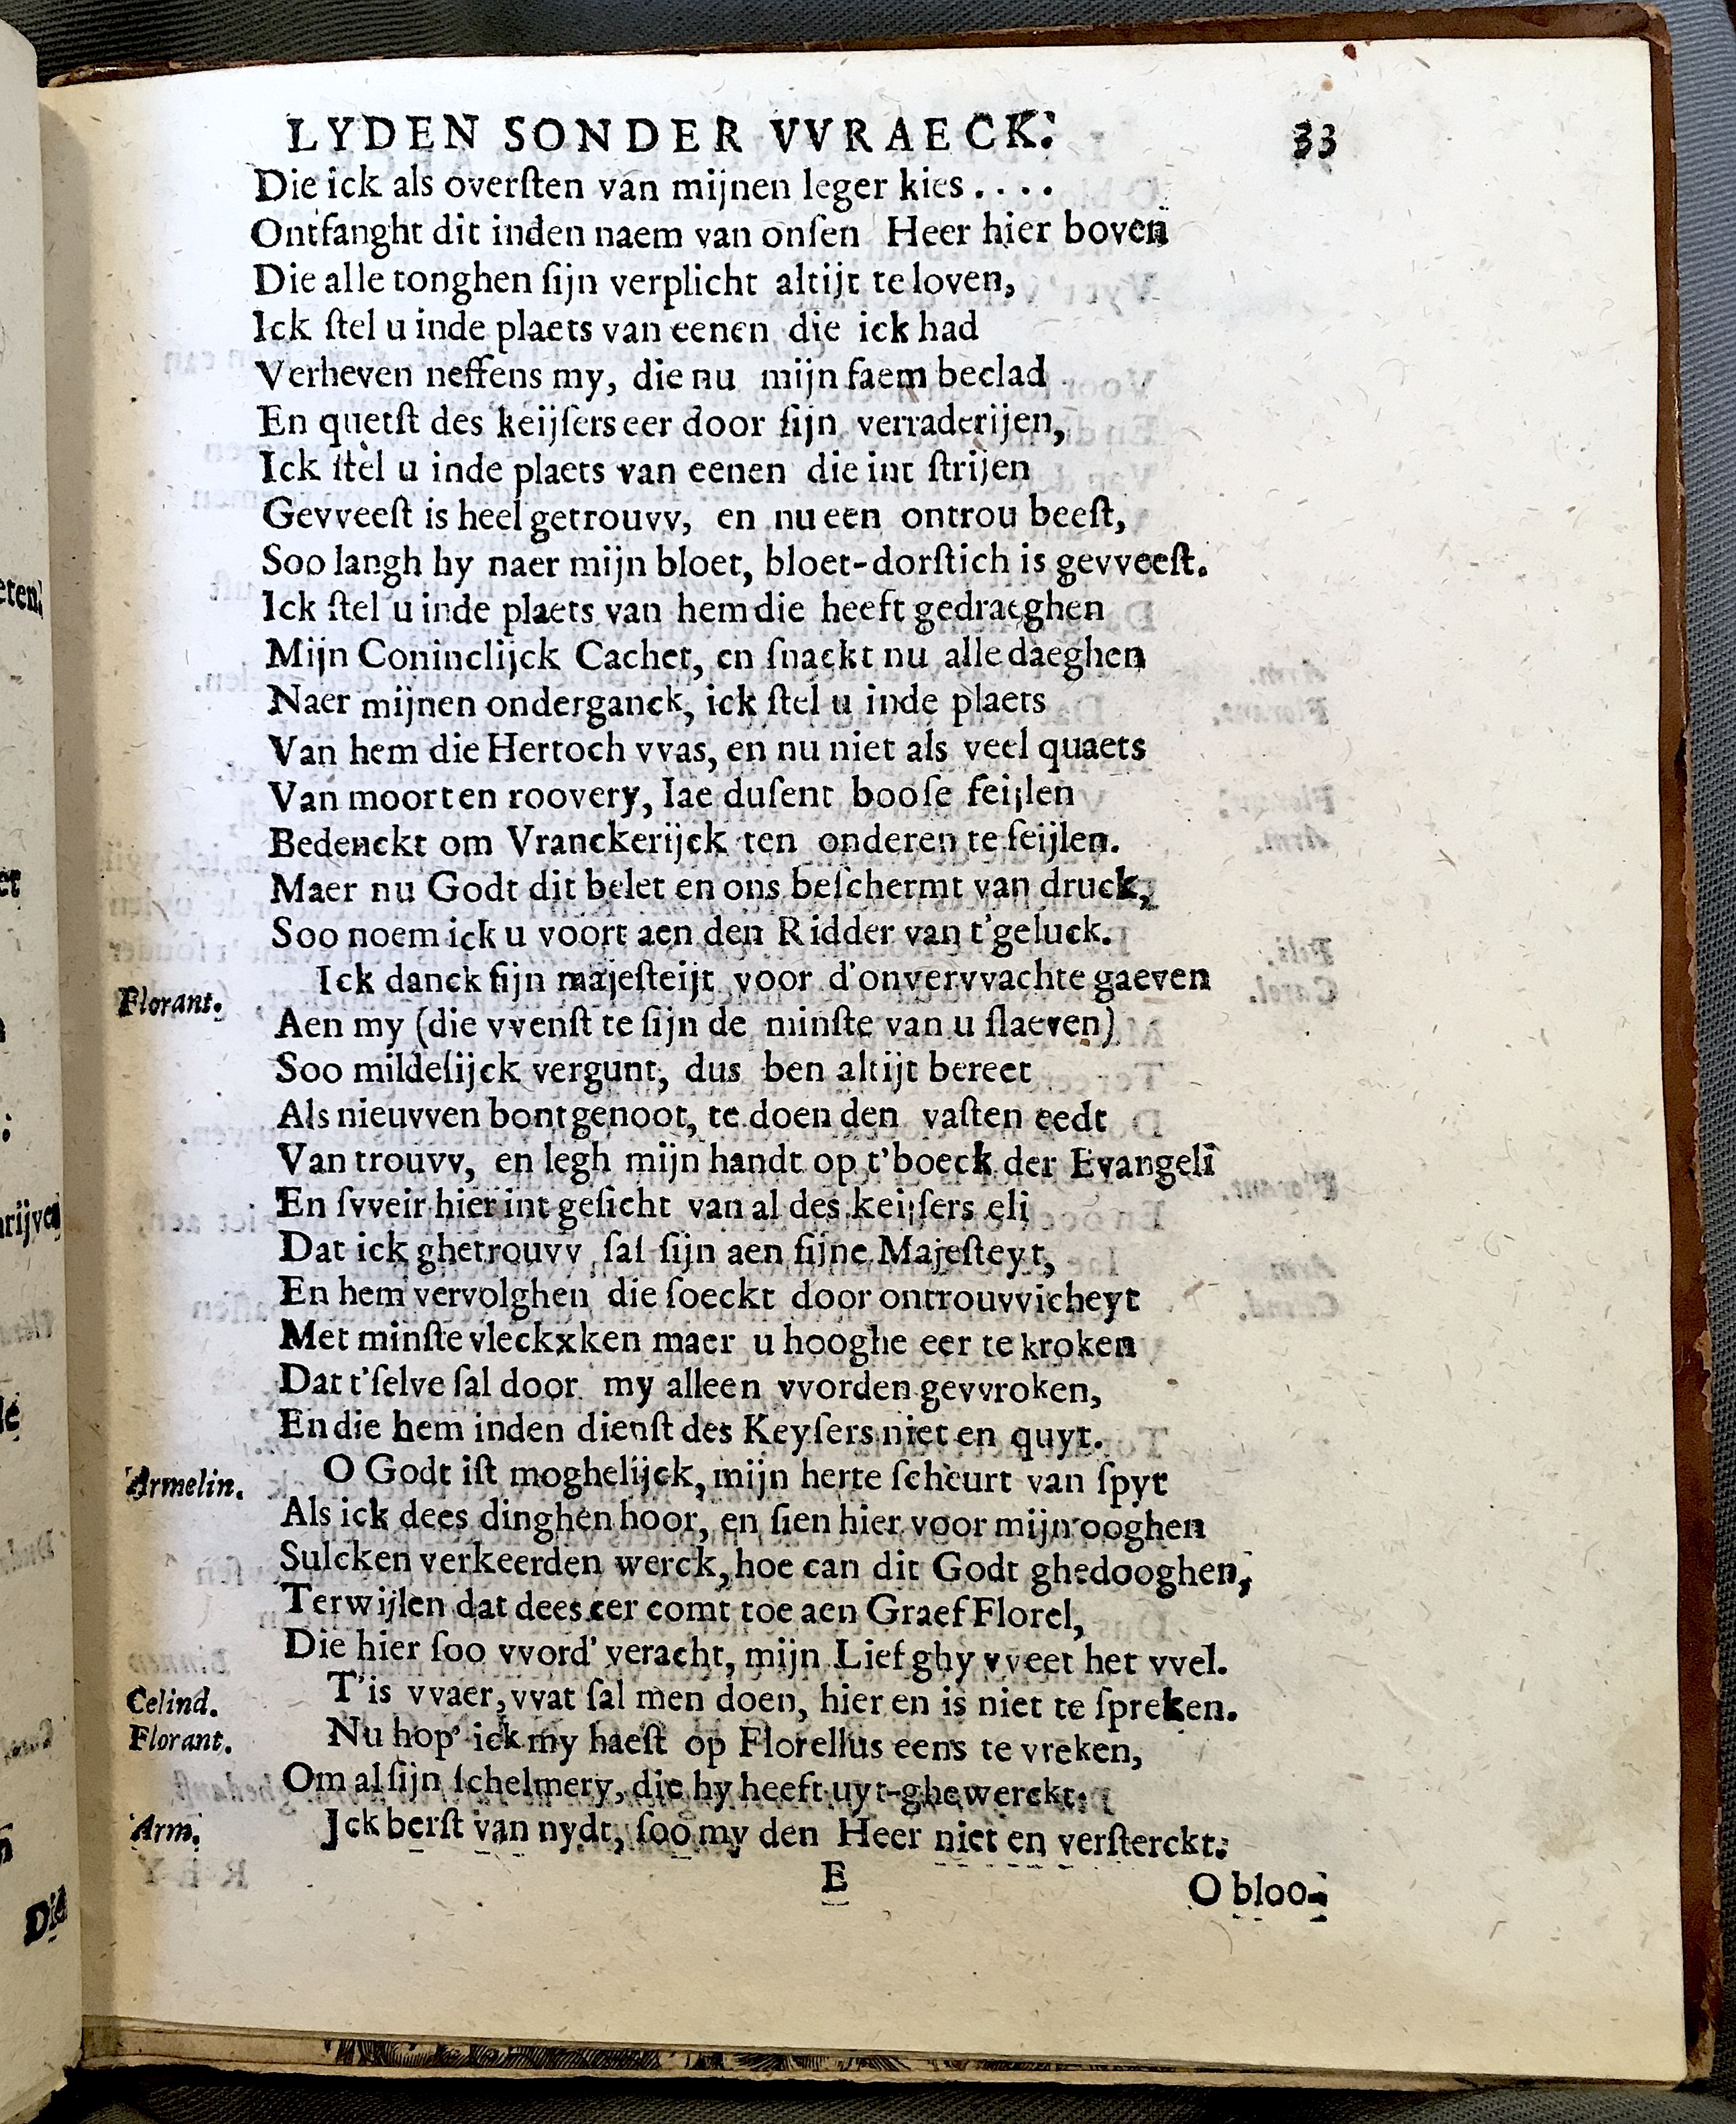 LYDEN SONDER VVRAECK. 33
Die ick als oversten van mijnen leger kies....
Ontfanght dit inden naem van onsen Heer hier boven
Die alle tonghen sijn verplicht altijt te loven,
Ick stel u inde plaets van eenen die ick had
Verheven neffens my, die nu mijn faem beclad
En quetst des keijsers eer door sijn verraderijen,
Ick stel u inde plaets van eenen die int strijen
Gevveest is heel getrouvv, en nu een ontrou beest,
Soo langh hy naer mijn bloet, bloet-dorstich is gevveest.
Ick stel u inde plaets van hem die heeft gedraeghen
Mijn Coninclijck Cachet, en snackt nu alle daeghen
Naer mijnen onderganck, ick stel u inde plaets
Van hem die Hertoch vvas, en nu niet als veel quaets
Van moort en roovery, Iae dusent boose feijlen
Bedenckt om Vranckerijck ten onderen te seijlen.
Maer nu Godt dit belet en ons beschermt van druck,
Soo noem ick u voort aen den Ridder van t'geluck.
Florant. Ick danck sijn majesteijt voor d'onvervvachte gaeven
Aen my (die vvenst te sijn de minste van u slaeven)
Soo mildelijck vergunt, dus ben altijt bereet
Als nieuvven bontgenoot, te doen den vasten eedt
Van trouvv, en legh mijn handt op t'boeck der Evangeli
En svveir hier int gesicht van al des keijsers eli
Dat ick ghetrouvv sal sijn aen sijne Majesteyt,
En hem vervolghen die soeckt door ontrouvvicheyt
Met minste vleckxken maer u hooghe eer te kroken
Dat t'selve sal door my alleen vvorden gevvroken,
En die hem inden dienst des Keysers niet en quyt.
Armelin. O Godt ist moghelijck, mijn herte scheurt van spyt
Als ick dees dinghen hoor, en sien hier voor mijn ooghen
Sulcken verkeerden werck, hoe can dit Godt ghedooghen,
Terwijlen dat dees eer comt toe aen Graef Florel,
Die hier soo vvord' veracht, mijn Lief ghy vveet het vvel.
Celind. T'is vvaer, vvat sal men doen, hier en is niet te spreken.
Florant. Nu hop' ick my haest op Florellus eens te vreken,
Om al sijn schelmery, die hy heeft uyt-ghewerckt.
Arm. Jck berst van nydt, soo my den Heer niet en versterckt.
E O bloo-